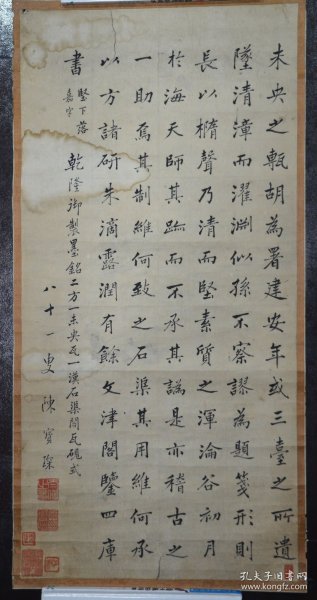 未央之甎胡為署建安年或三臺之所遺
墜清漳而濯淵似孫不察謬為題箋形則
長以橢聲乃清而堅素質之渾淪谷初月
於海天師其跡而不承其譌是亦稽古之
一助焉其制維何致之石渠其用維何承
以方諸研朱滴露潤有餘文津閣鑒四庫
書
堅下落
嘉字
乾隆御製墨銘二方一未央瓦一漢石渠閣瓦硯式
八十一叟陳寶琛
孔夫子旧书网